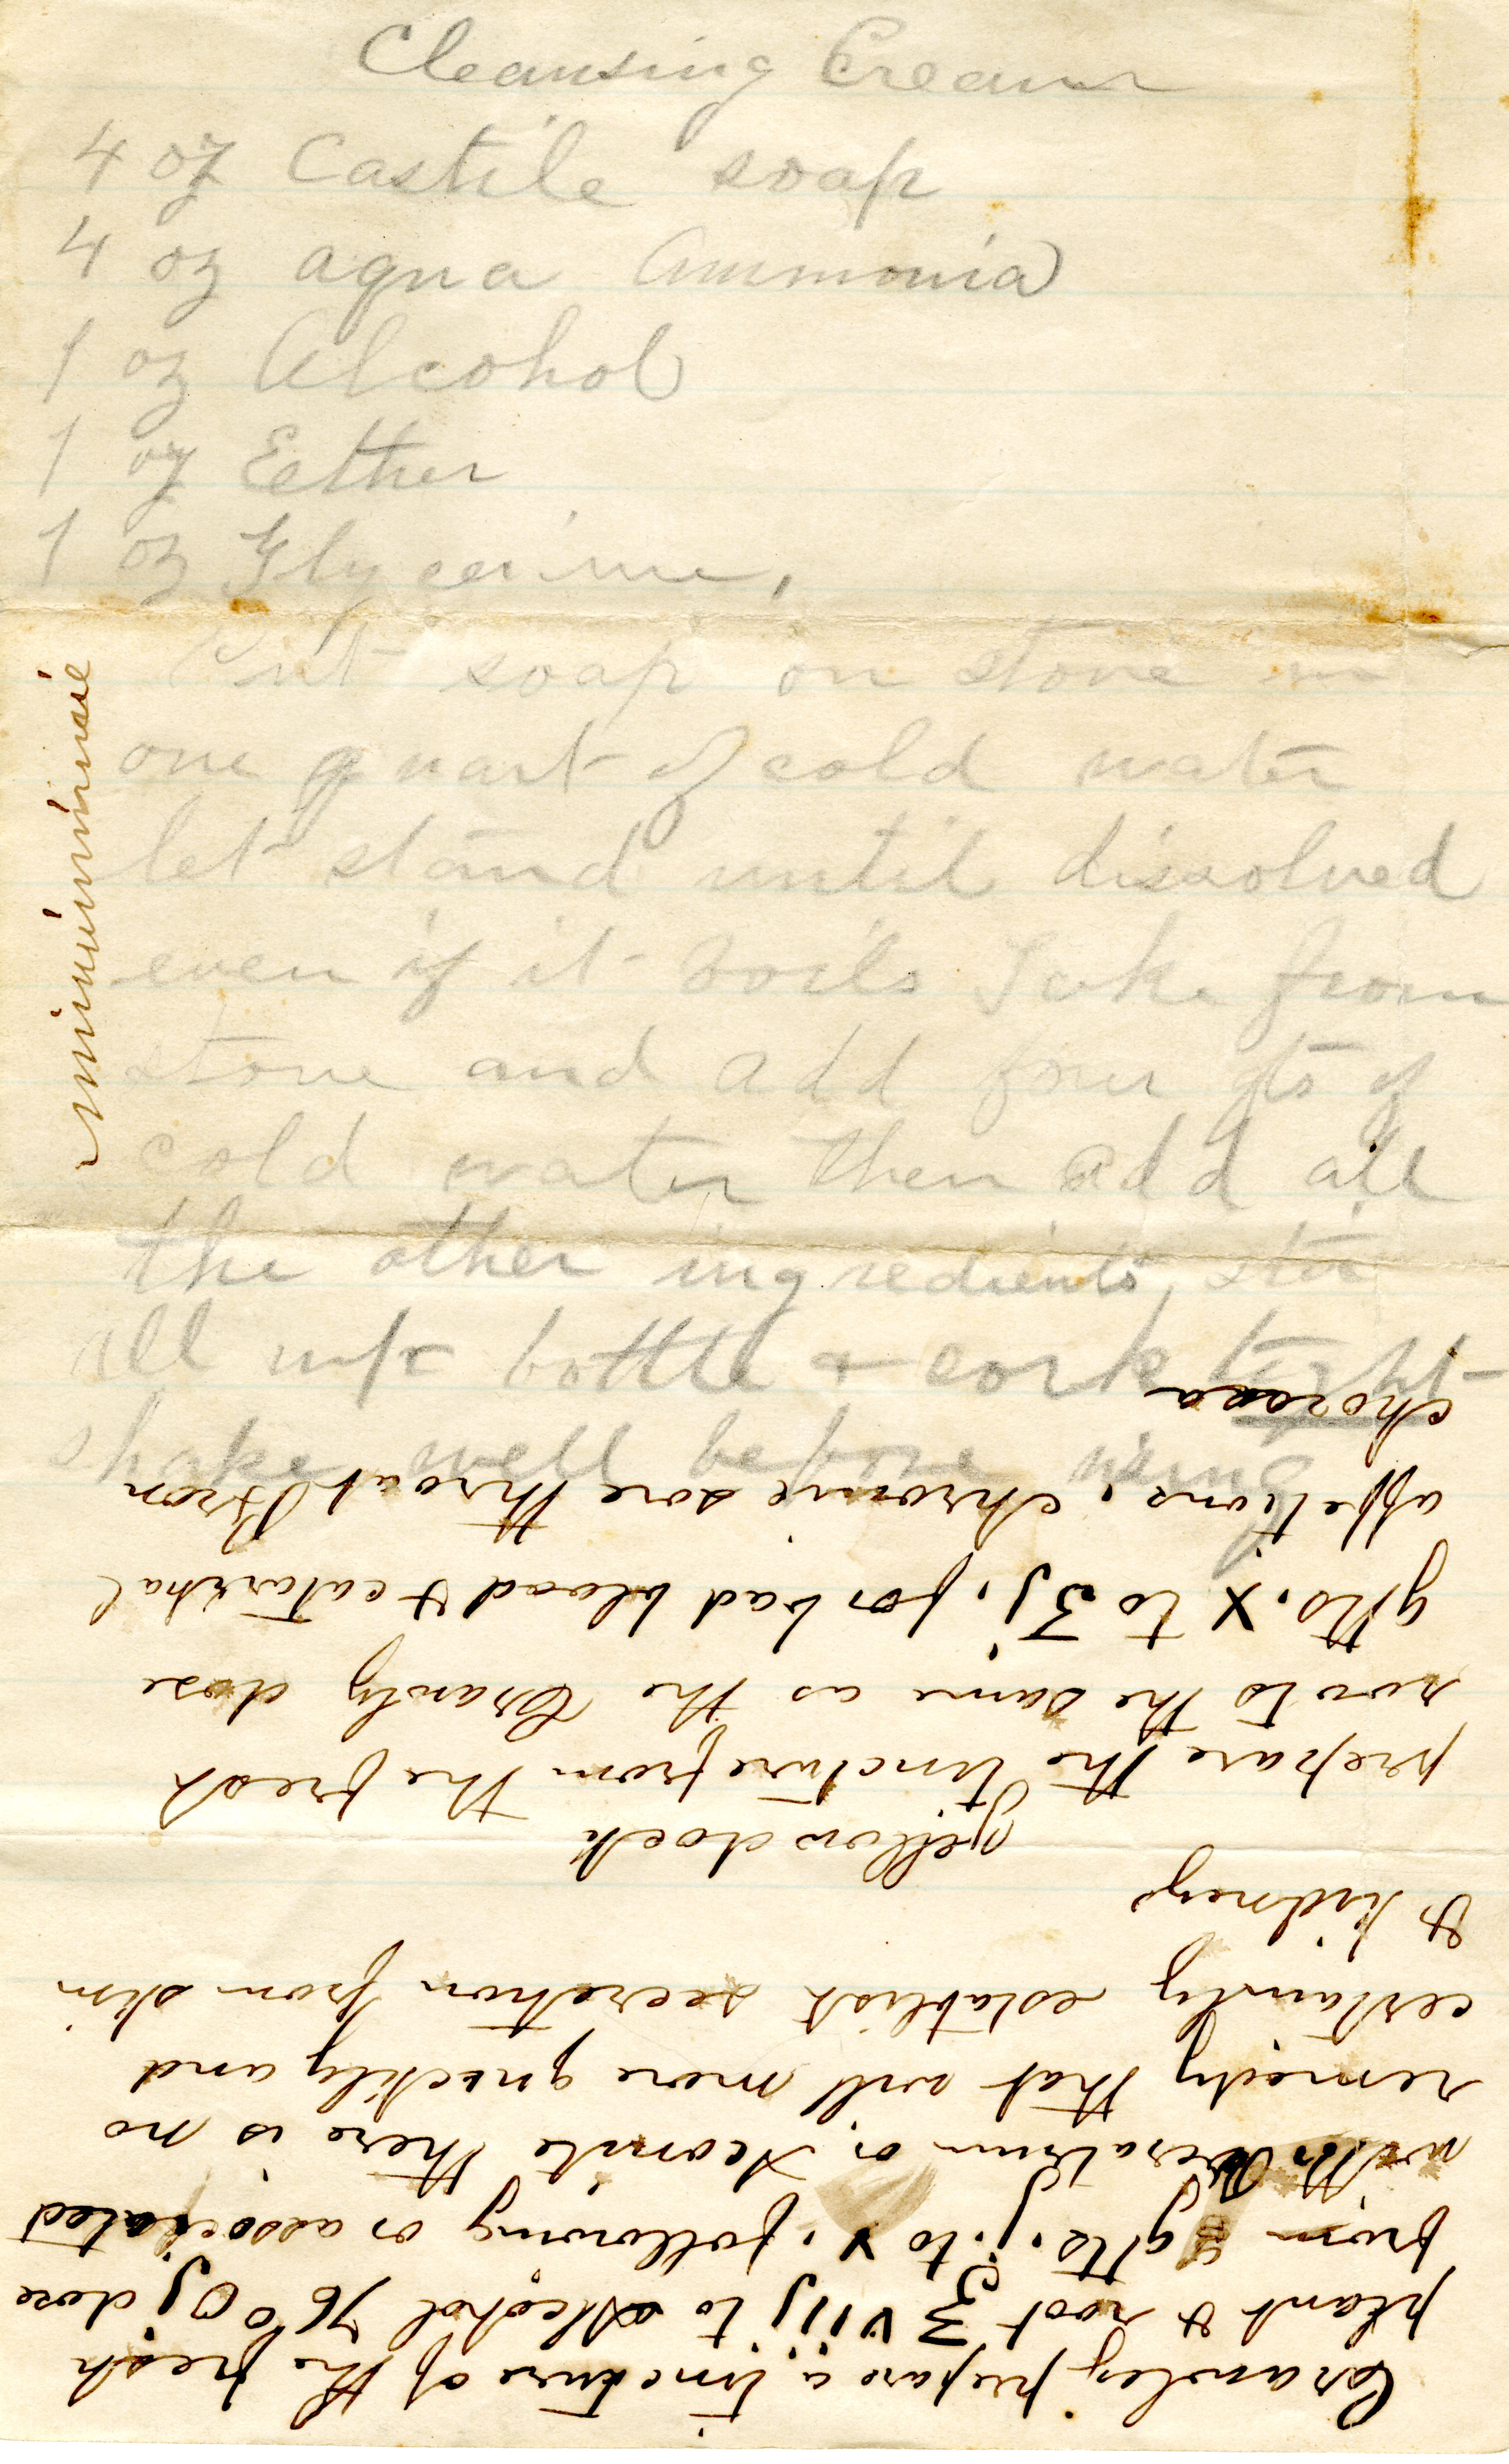 Cleansing Cream
4 oz Castile soap
4 oz aqua Ammonia
1 oz Alcohol
1 oz Eether
1 oz Glycerine.
Put soap on stove in
one quart of cold water
let stand until dissolved
even if it boils Take from
stove and add four qts of
cold water then add all
the other ingredients, stir
all up bottle & cork tight
shake well before using
prepare a tincture of the fresh
plant & root ℥ viij to Alcohol 76° Oj dose
from gtts. j. to x. following or associated
with Veratrum or Aconite there is no
remedy that will more quickly and
certainly establish secretion from skin
& kidneys
yellow dock
prepare the tincture from the fresh
roots the same as the dose
gtts. x to ʒj. for bad blood & catarrhal
affetions. chronic sore throat